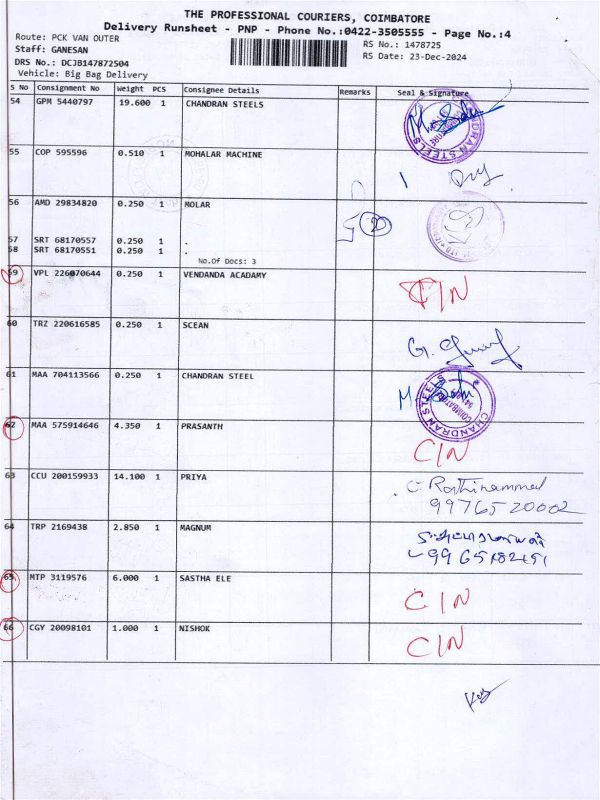 THE PROFESSIONAL COURIERS, COIMBATORE
Delivery Runsheet - PNP - Phone No.:0422-3505555 - Page No.:4
Route: PCK VAN OUTER
RS No.: 1478725
Staff: GANESAN
RS Date: 23-Dec-2024
DRS No.: DCJB147872504
Vehicle: Big Bag Delivery
S No Consignment No Weight PCS Consignee Details Remarks Seal & Signature
54 GPM 5440797 19.600 1 CHANDRAN STEELS
CHANDRAN STEELS
55 COP 595596 0.510 1 MOHALAR MACHINE
56 AMD 29834820 0.250 1 MOLAR
20
57 SRT 68170557 0.250 1 .
58 SRT 68170551 0.250 1 .
No.Of Docs: 3
59 VPL 226070644 0.250 1 VENDANDA ACADAMY
CIN
60 TRZ 220616585 0.250 1 SCEAN
61 MAA 704113566 0.250 1 CHANDRAN STEEL
CHANDRAN STEELS
COIMBATORE
62 MAA 575914646 4.350 1 PRASANTH
CIN
63 CCU 200159933 14.100 1 PRIYA
9976520002
64 TRP 2169438 2.850 1 MAGNUM
65 MTP 3119576 6.000 1 SASTHA ELE
CIN
66 CGY 20098101 1.000 1 NISHOK
CIN